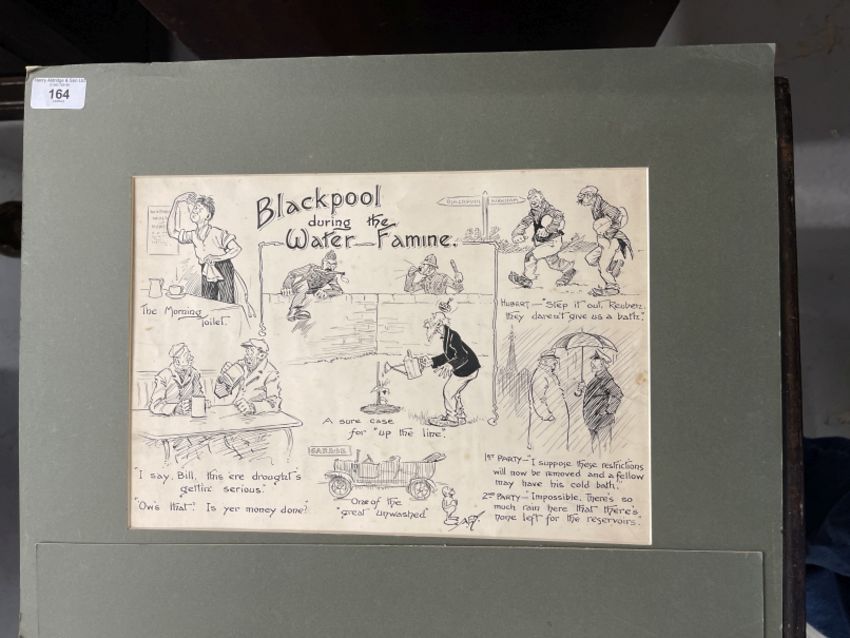 Henry Aldridge & Son Ltd
164
Blackpool
during the
Water Famine.
BLACKPOOL
KIRKHAM
The Morning
Toilet.
HUBERT — "Step it out, Reuben,
they daren't give us a bath."
A sure case
for "up the line."
"I say, Bill, this 'ere drought's
gettin' serious."
"'Ow's that? Is yer money done?"
GARAGE
One of the
"great unwashed"
1ST PARTY — "I suppose these restrictions
will now be removed and a fellow
may have his cold bath."
2ND PARTY — "Impossible. There's so
much rain here that there's
none left for the reservoirs."